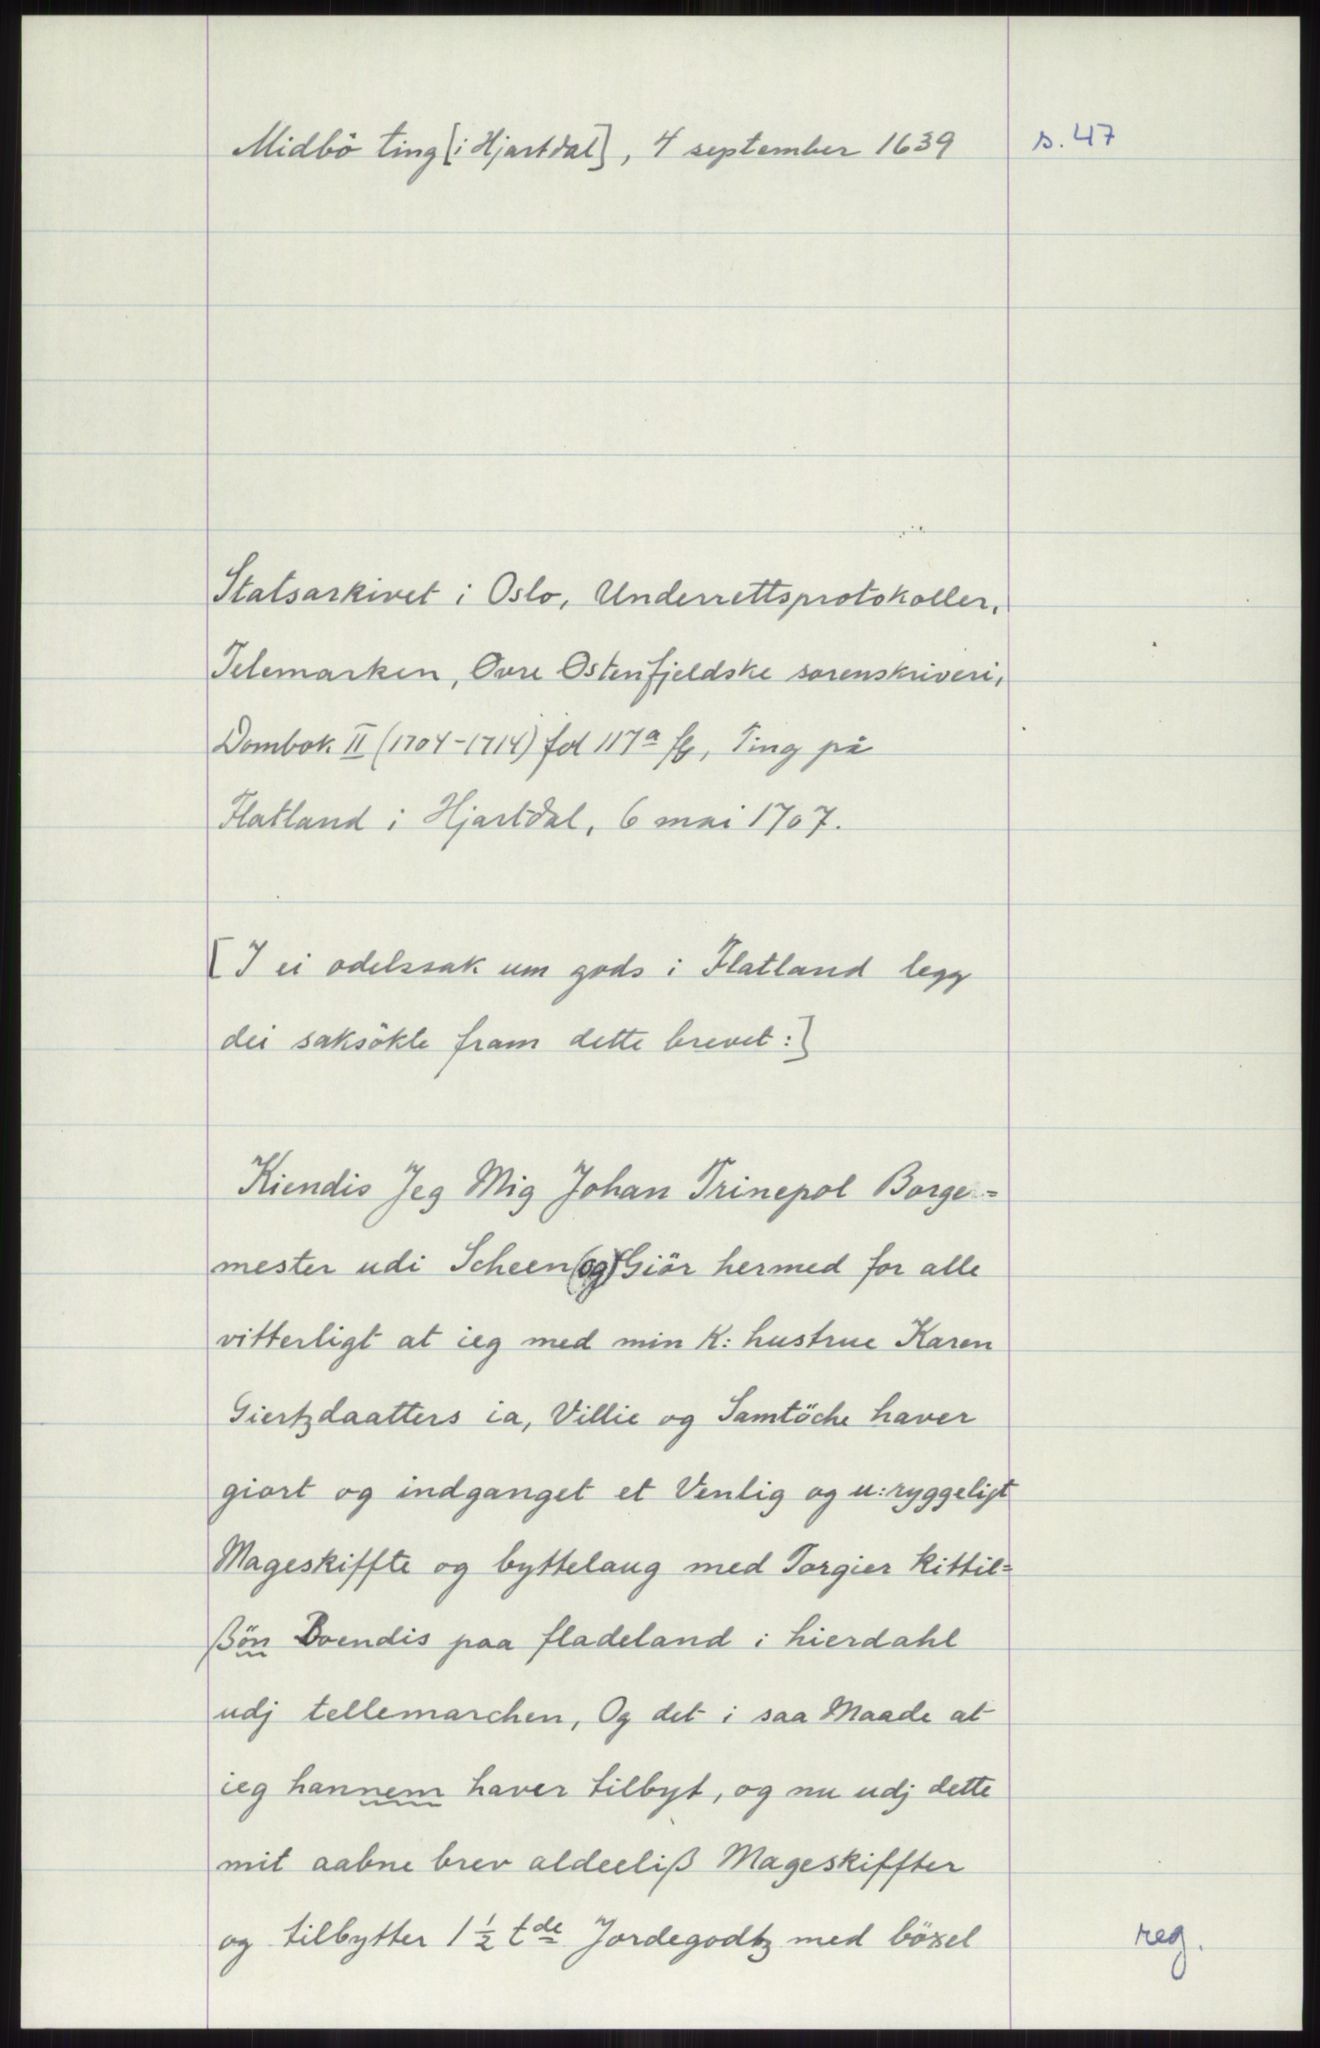 Midbö ting [i Hjartdal], 4 september 1639 s. 47
Statsarkivet i Oslo, Underrettsprotokoller,
Telemarken, Øvre Østenfjeldske sorenskriveri,
Dombok II (1704-1714) fol 117a flg, Ting på
Flatland i Hjartdal, 6 mai 1707.
[I ei odelssak um gods i Flatland legg
dei saksökte fram dette brevet:]
Kiendis Jeg Mig Johan Trinepol Borge=
mester udi Scheen (og) Giör hermed for alle
vitterligt at ieg med min K: hustrue Karen
Giertzdaatters ia, Villie og Samtöche haver
giort og indganget et Venlig og u:ryggeligt
Mageskiffte og byttelaug med Torgier kittil=
ßön Boendis paa fladeland i hierdahl
udj tellemarchen, Og det i saa Maade at
ieg hannem haver tilbyt, og nu udj dette
mit aabne brev aldeeliß Mageskiffter
og tilbytter 1 1/2 tde Jordegodtz med böxel
reg.